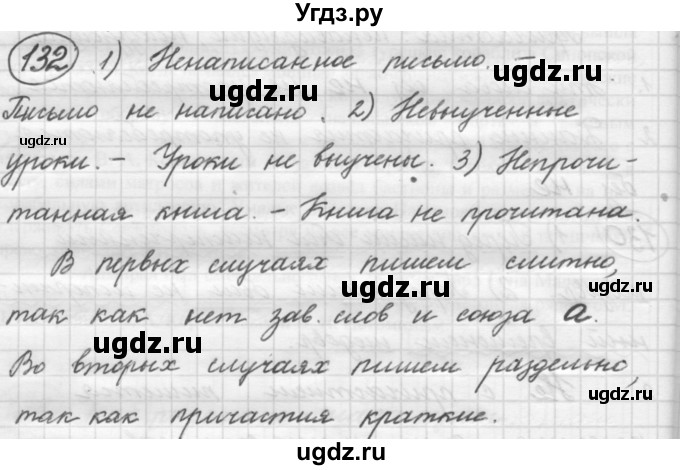 Угдз.ру
132 1) Ненаписанное письмо. –
Письмо не написано. 2) Невыученные
уроки. – Уроки не выучены. 3) Непрочи-
танная книга. – Книга не прочитана.
В первых случаях пишем слитно,
так как нет зав. слов и союза а.
Во вторых случаях пишем раздельно,
так как причастия краткие.
ugdz.ru
ugdz.ru
ugdz.ru
ugdz.ru
ugdz.ru
ugdz.ru
ugdz.ru
ugdz.ru
ugdz.ru
ugdz.ru
ugdz.ru